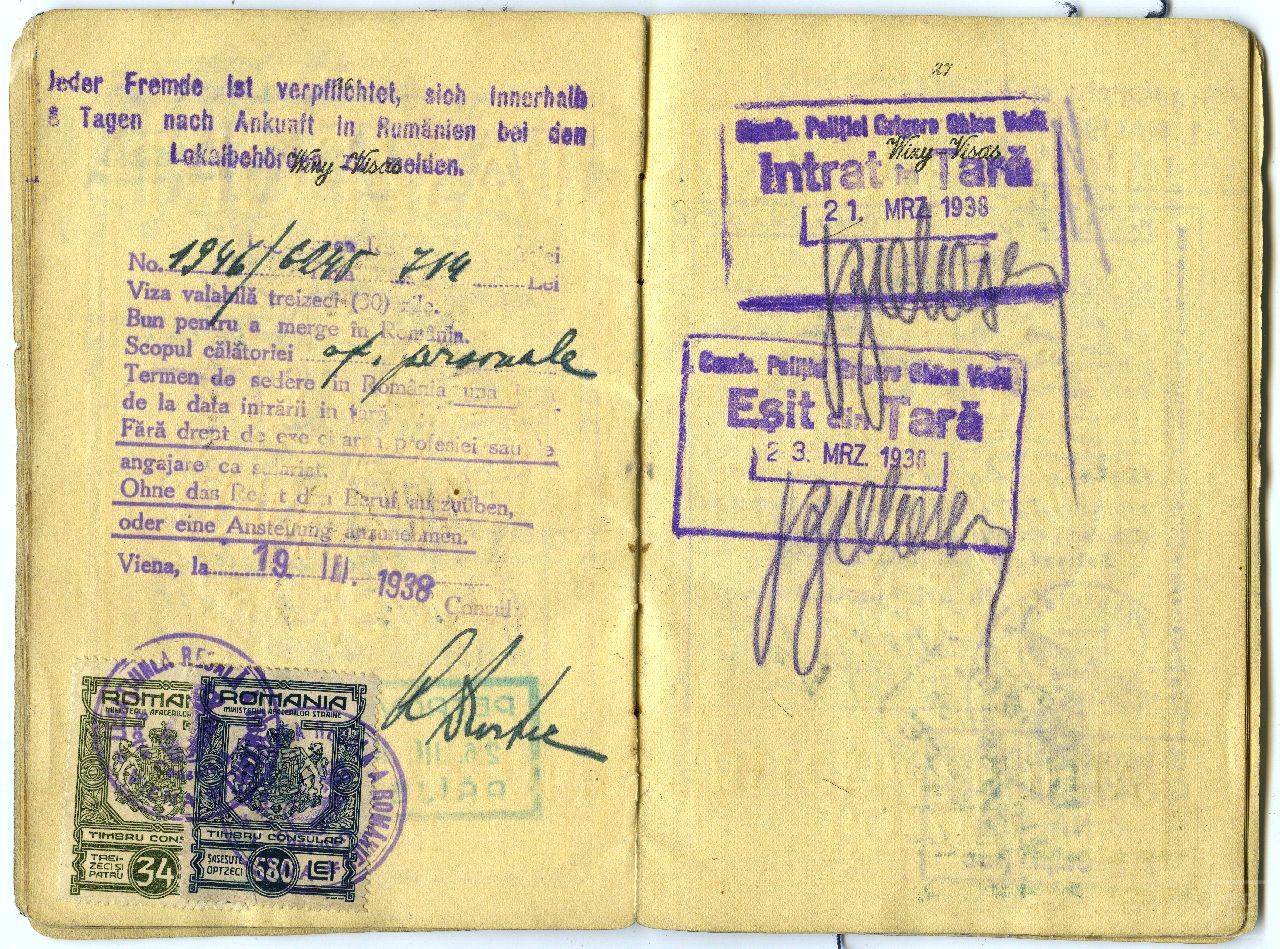 Jeder Fremde ist verpflichtet, sich innerhalb
8 Tagen nach Ankunft in Rumänien bei den
Lokalbehörden zu melden.
Wizy Visas
No. 1946/6245 714 Lei
Viza valabilă treizeci (30) zile.
Bun pentru a merge în România.
Scopul călătoriei af. personale
Termen de sedere in România una
de la data intrării in țară
Fără drept de exercitarea profesiei sau de
angajare ca salariat.
Ohne das Recht den Beruf auszuüben,
oder eine Anstellung anzunehmen.
Viena, la 19 III. 1938
Consul
ROMANIA
MINISTERUL AFACERILOR
TIMBRU CONS
TREI-
ZECI ȘI
PATRU
34
ROMANIA
MINISTERUL AFACERILOR STRAINE
TIMBRU CONSULAR
ȘASESUTE
OPTZECI
680 LEI
27
Comis. Poliției Grigore Ghica Vodă
Wizy Visas
Intrat in Țară
21. MRZ. 1938
Comis. Poliției Grigore Ghica Vodă
Eșit din Țară
23. MRZ. 1938